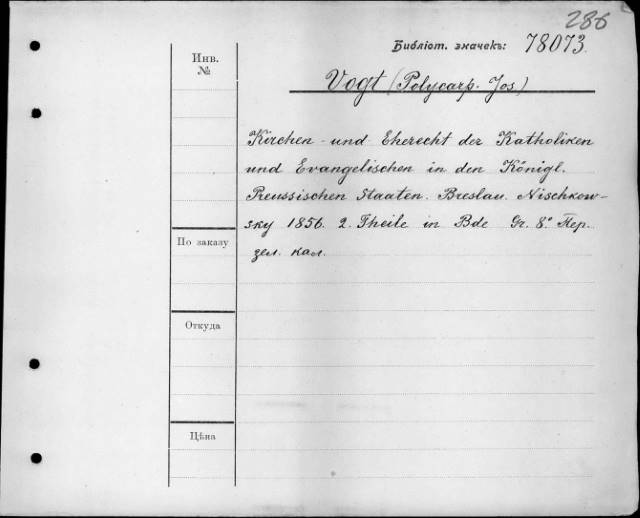 286
Библіот. значекъ: 78073.
Инв.
№
Vogt (Polycarp. Jos)
Kirchen- und Eherecht der Katholiken
und Evangelischen in den Königl.
Preussischen Staaten. Breslau. Nischkow-
sky 1856. 2. Theile in Bde Gr. 8.° Пер.
зел. кал.
По заказу
Откуда
Цѣна